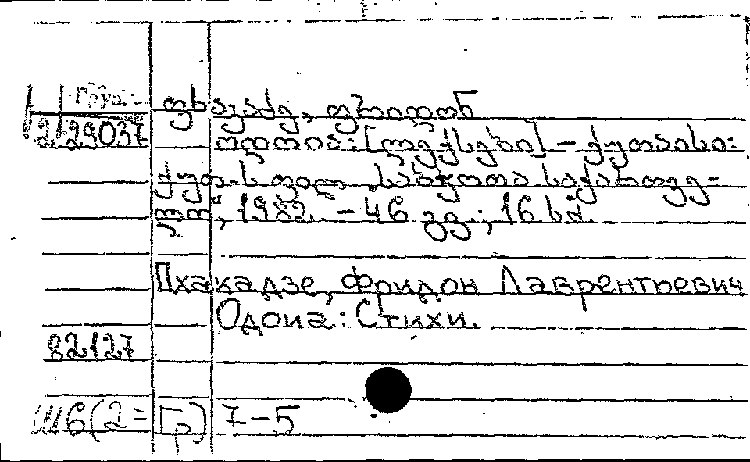 Груз.
2129037
ფხაკაძე, ფრიდონ
ოდოია: [ლექსები] – ქუთაისი:
ქუთ. ს ფილ. „საბჭოთა საქართვე-
ლო", 1982. – 46 გვ.; 16 სმ.
Пхакадзе, Фридон Лаврентьевич
Одоиа: Стихи.
82127
Ш6(2=Гр)7-5